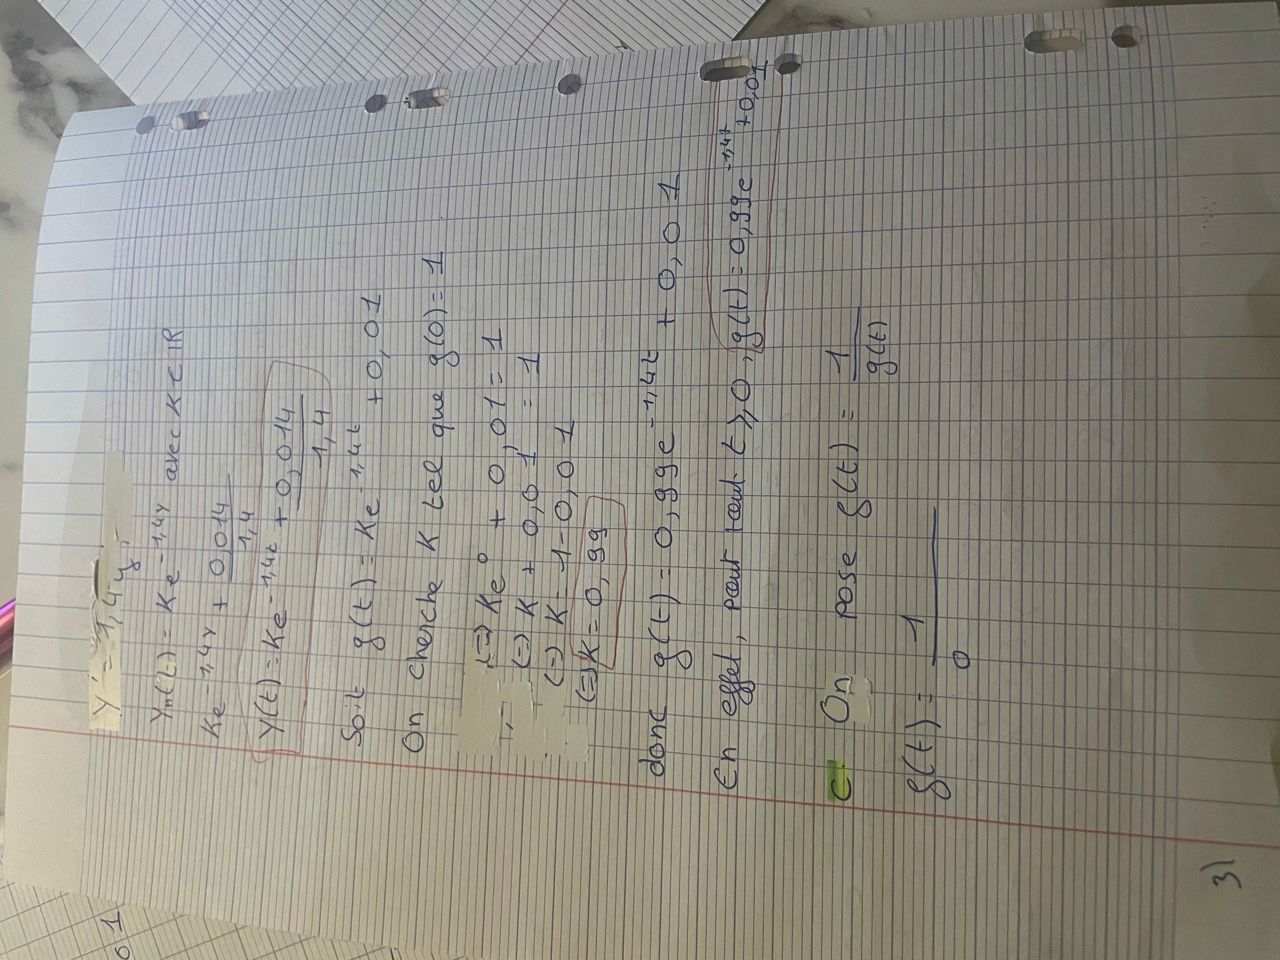 Y' = -1,4y
Yn(t) = Ke^-1,4t avec K ∈ IR
Ke^-1,4t + 0,014/1,4
Y(t) = Ke^-1,4t + 0,014/1,4
Soit g(t) = Ke^-1,4t + 0,01
On cherche K tel que g(0) = 1
(=) Ke^0 + 0,01 = 1
(=) K + 0,01 = 1
(=) K = 1 - 0,01
(=) K = 0,99
donc g(t) = 0,99e^-1,4t + 0,01
En effet, pour tout t ⩾ 0, g(t) = 0,99e^-1,4t + 0,01
c. On pose f(t) = 1/g(t)
f(t) = 1/0
3)
0 1